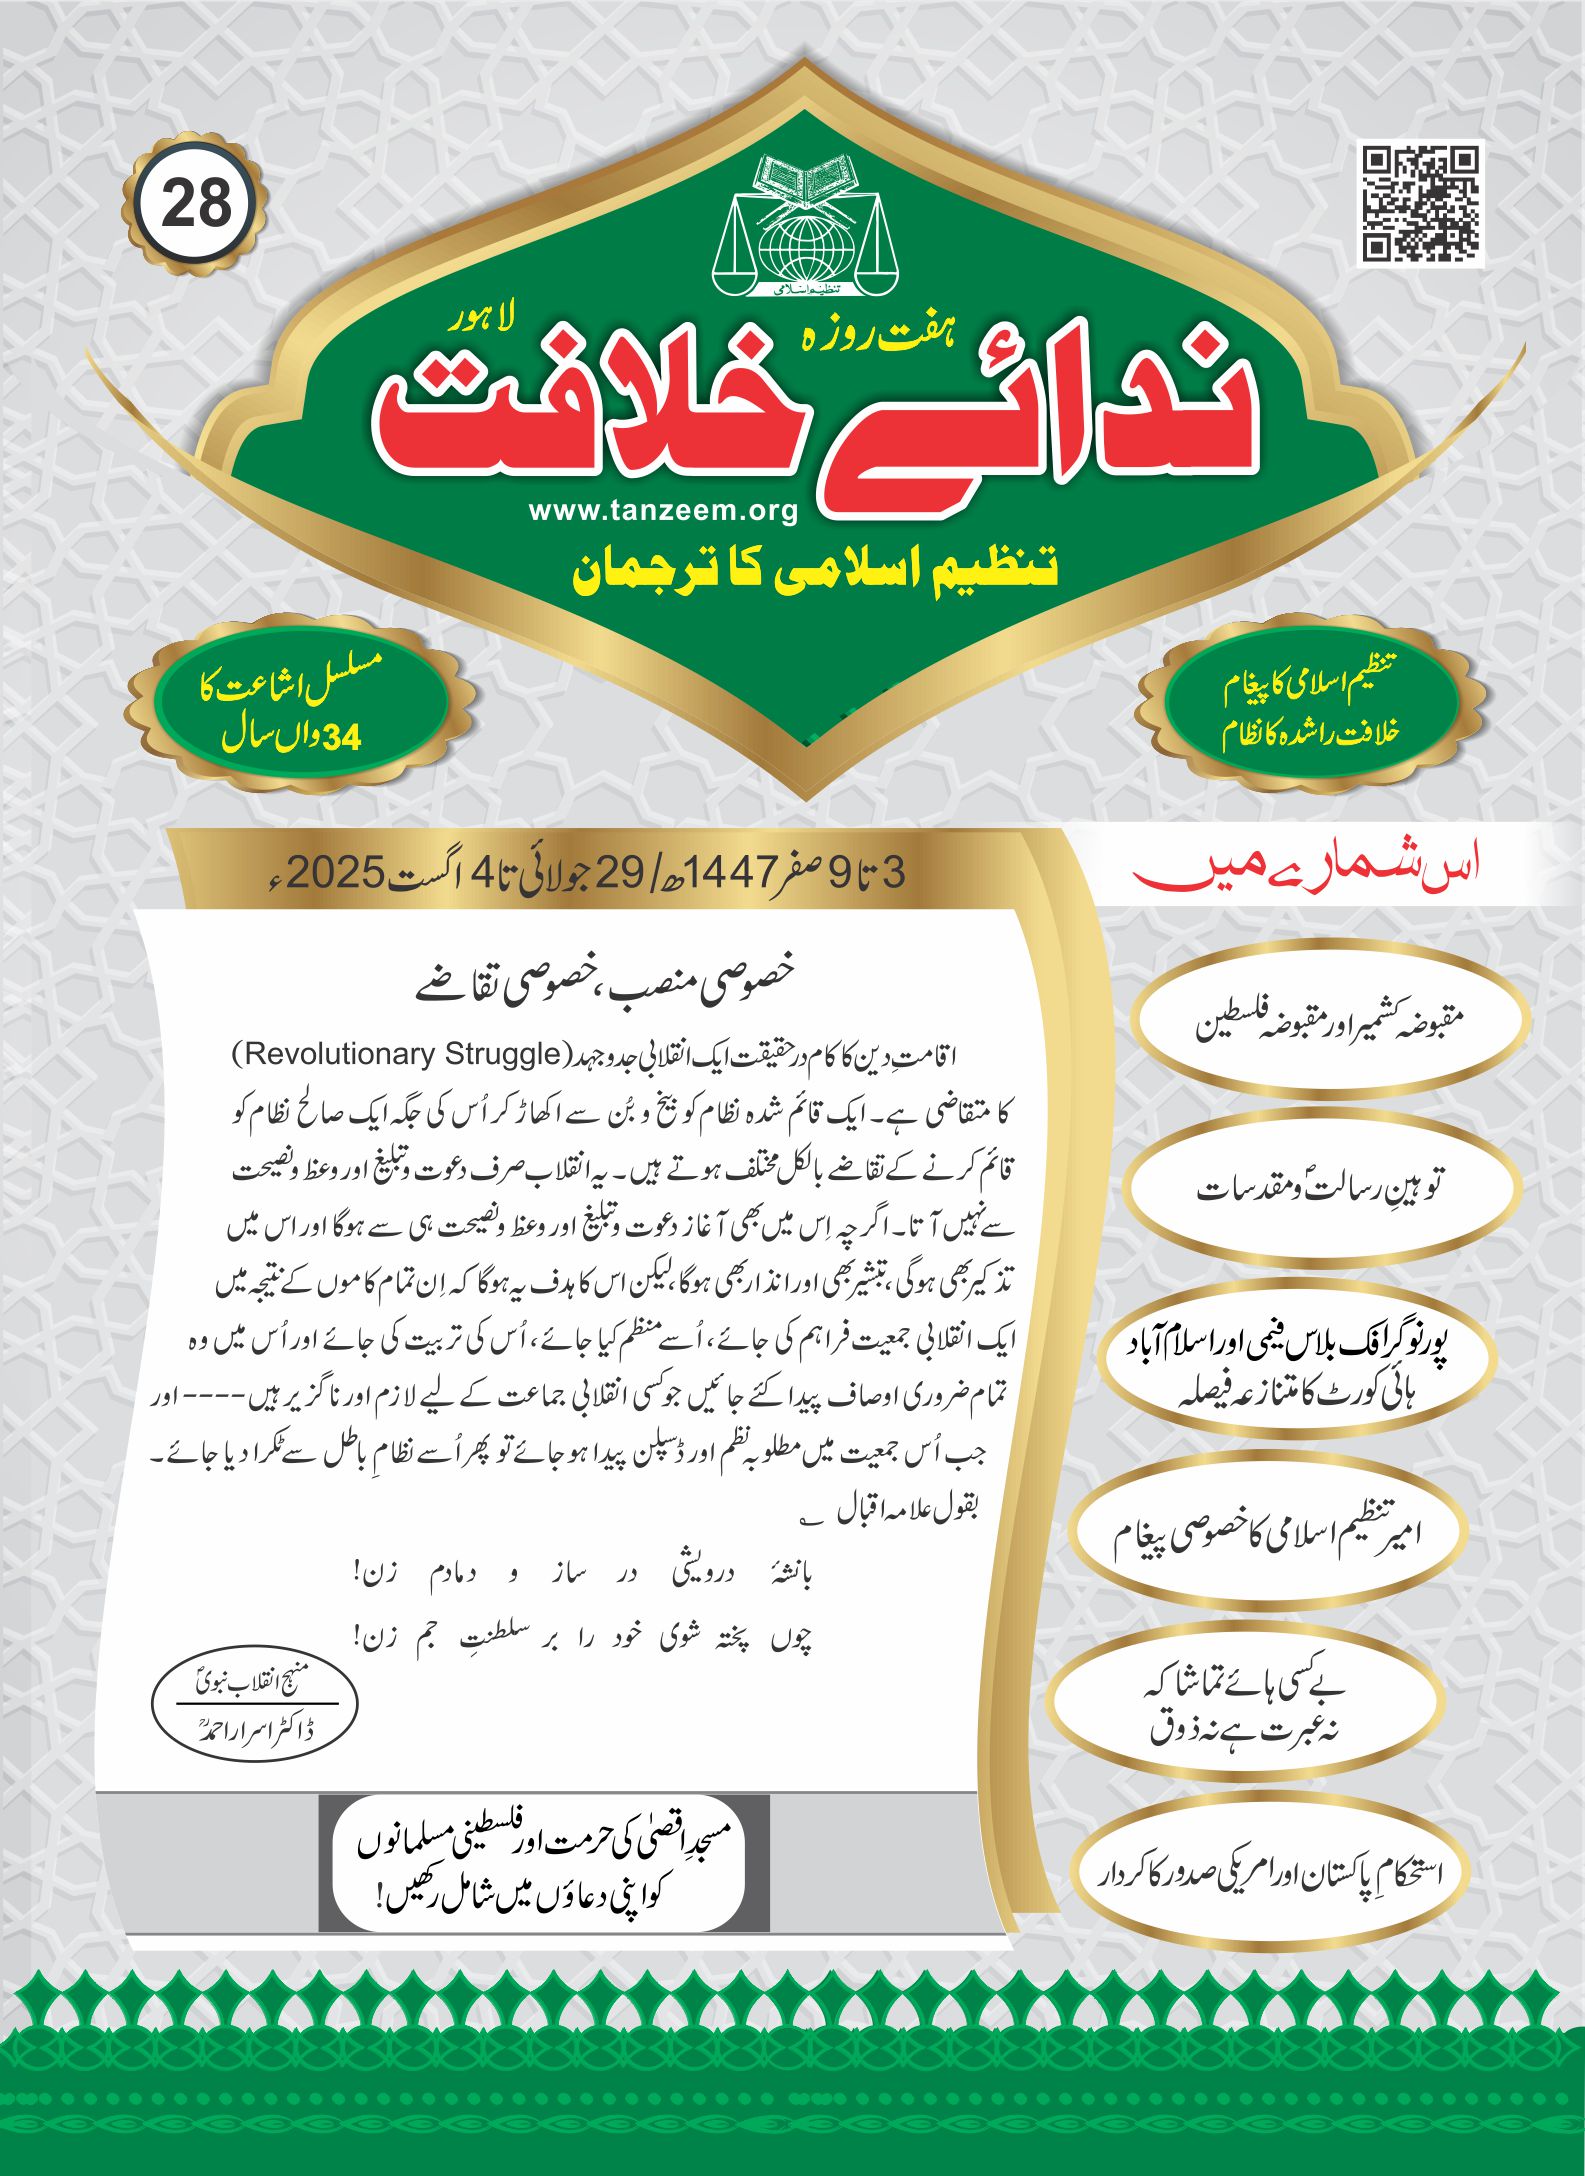 28
تنظیم اسلامی
ہفت روزہ
لاہور
ندائے خلافت
www.tanzeem.org
تنظیم اسلامی کا ترجمان
تنظیم اسلامی کا پیغام
خلافت راشدہ کا نظام
مسلسل اشاعت کا
34واں سال
3 تا 9 صفر 1447ھ/ 29 جولائی تا 4 اگست 2025ء
خصوصی منصب، خصوصی تقاضے
اقامتِ دین کا کام در حقیقت ایک انقلابی جدوجہد (Revolutionary Struggle)
کا متقاضی ہے۔ ایک قائم شدہ نظام کو بیخ و بُن سے اکھاڑ کر اُس کی جگہ ایک صالح نظام کو
قائم کرنے کے تقاضے بالکل مختلف ہوتے ہیں۔ یہ انقلاب صرف دعوت و تبلیغ اور وعظ و نصیحت
سے نہیں آتا۔ اگرچہ اِس میں بھی آغاز دعوت و تبلیغ اور وعظ و نصیحت ہی سے ہوگا اور اس میں
تذکیر بھی ہوگی، تبشیر بھی اور انذار بھی ہوگا، لیکن اس کا ہدف یہ ہوگا کہ اِن تمام کاموں کے نتیجہ میں
ایک انقلابی جمعیت فراہم کی جائے، اُسے منظم کیا جائے، اُس کی تربیت کی جائے اور اُس میں وہ
تمام ضروری اوصاف پیدا کئے جائیں جو کسی انقلابی جماعت کے لیے لازم اور ناگزیر ہیں ---- اور
جب اُس جمعیت میں مطلوبہ نظم اور ڈسپلن پیدا ہو جائے تو پھر اُسے نظامِ باطل سے ٹکرا دیا جائے۔
بقول علامہ اقبال ؎
بانشۂ درویشی در ساز و دمادم زن!
چوں پختہ شوی خود را بر سلطنتِ جم زن!
منہج انقلاب نبویؐ
ڈاکٹر اسرار احمدؒ
مسجدِ اقصیٰ کی حرمت اور فلسطینی مسلمانوں
کو اپنی دعاؤں میں شامل رکھیں!
اس شمارے میں
مقبوضہ کشمیر اور مقبوضہ فلسطین
توہینِ رسالتؐ و مقدسات
پورنوگرافک بلاس فیمی اور اسلام آباد
ہائی کورٹ کا متنازعہ فیصلہ
امیر تنظیم اسلامی کا خصوصی پیغام
بے کسی ہائے تماشا کہ
نہ عبرت ہے نہ ذوق
استحکامِ پاکستان اور امریکی صدور کا کردار